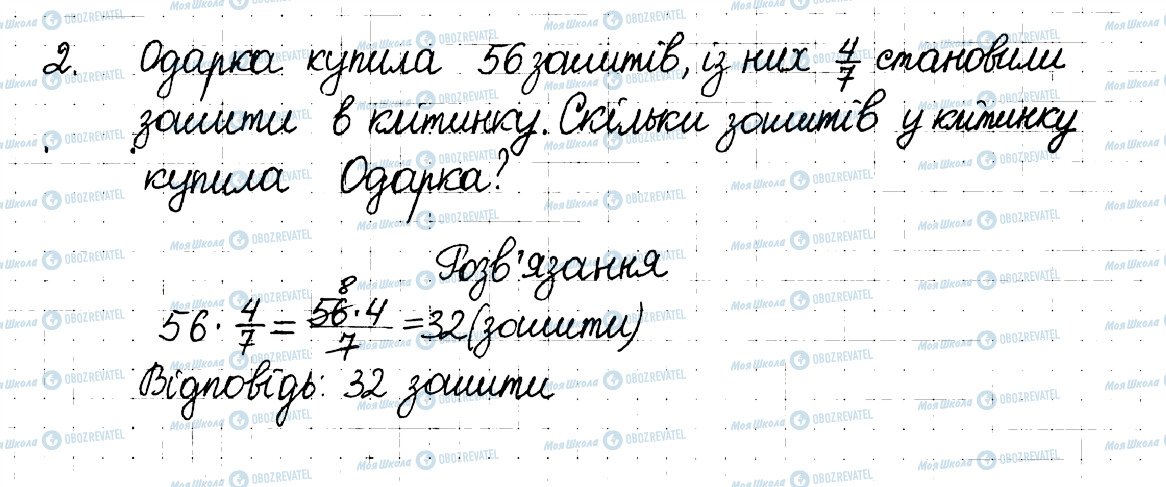 2. Одарка купила 56 зошитів, із них 4/7 становили
зошити в клітинку. Скільки зошитів у клітинку
купила Одарка?
Розв'язання
56 · 4/7 = 56·4/7 = 32 (зошити)
8
Відповідь: 32 зошити
Моя Школа OBOZREVATEL